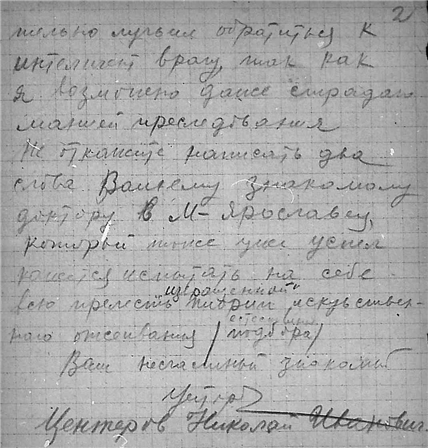 2
тельно лучьше обратиться к
интелигент врачу, так как
я возможно даже страдаю
манией преследования
Не откажите написать два
слова Вашему знакомому
доктору в М-Ярославец,
который тоже уже успел
кажется испытать на себе
всю прелесть извращенной "теории искусствен-
ного оживания /естественно подбора/
Ваш нечаянный знакомый
Центеров Николай Иванович.